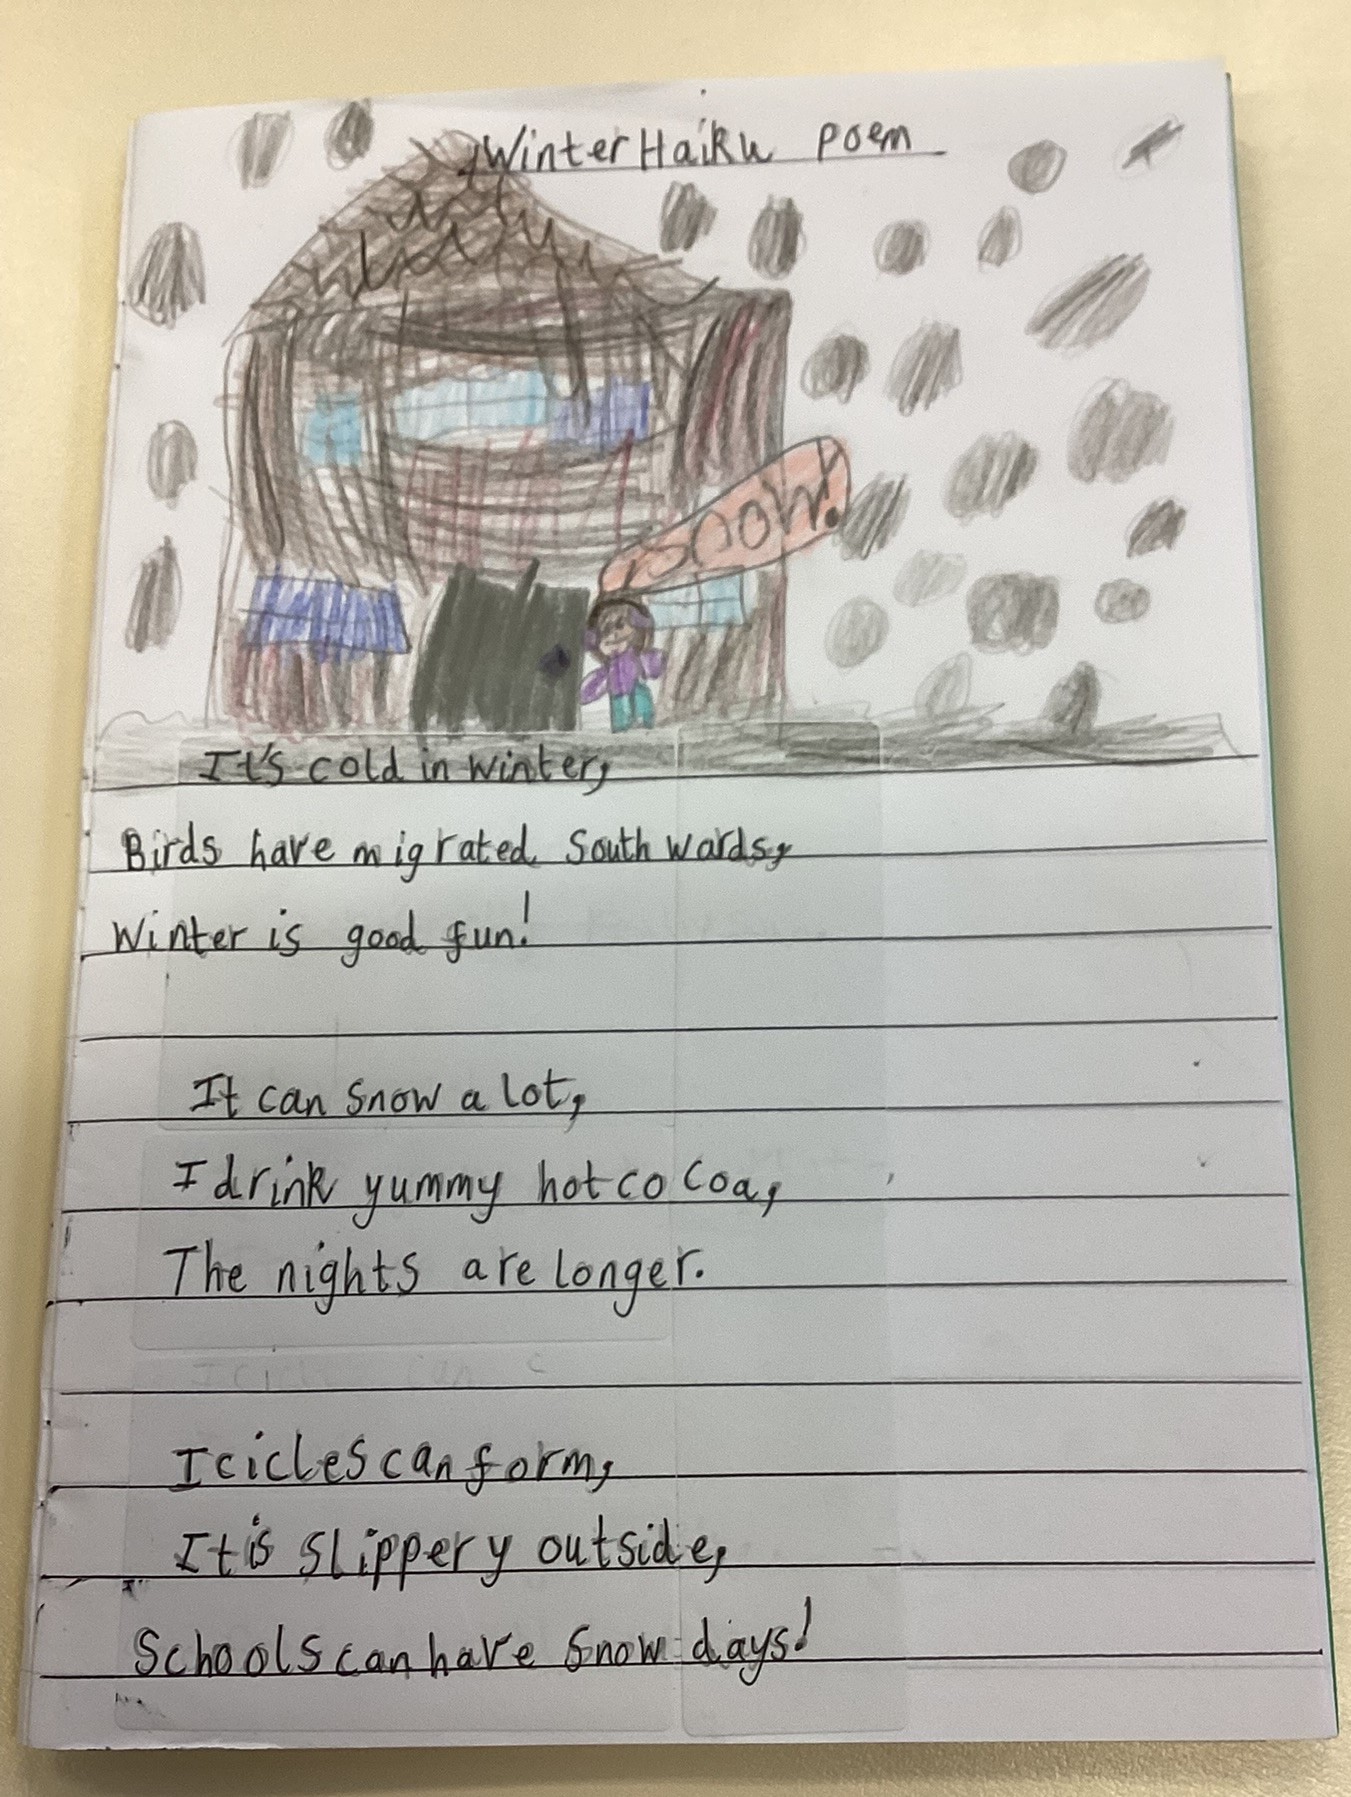 Winter Haiku poem
snow!
It's cold in winter,
Birds have migrated Southwards,
Winter is good fun!
It can snow a lot,
I drink yummy hot cocoa,
The nights are longer.
Icicles can form,
It is slippery outside,
Schools can have snow days!